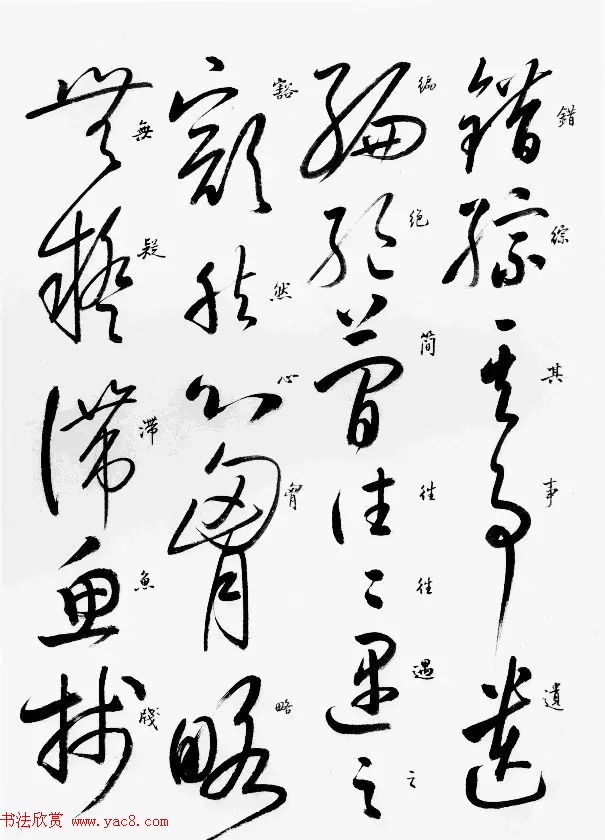 錯綜其事遺
編绝简往往遇之
豁然心胷略
無疑滞魚牋
书法欣赏 www.yac8.com